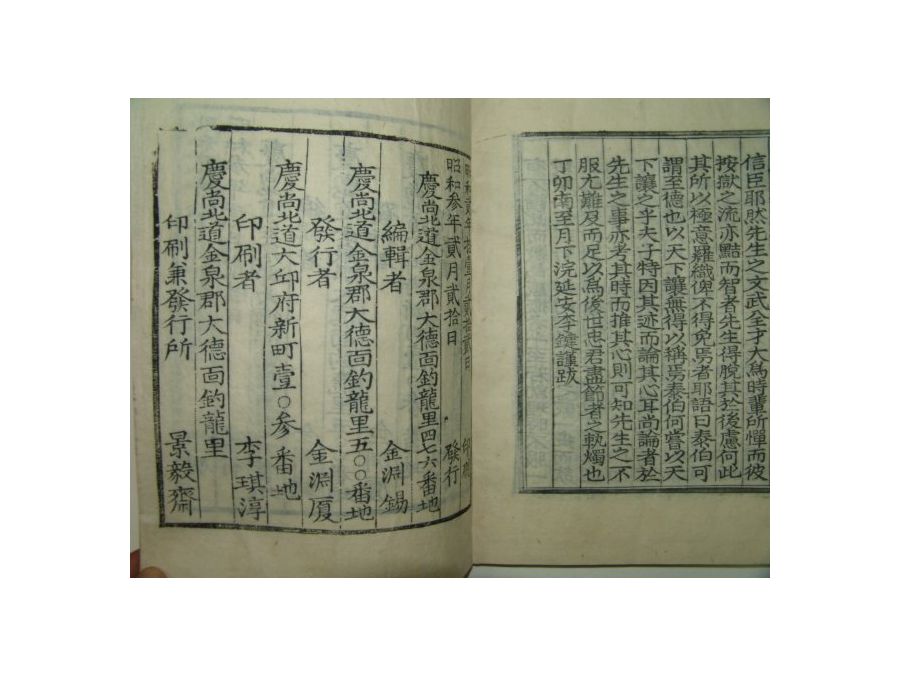 信臣耶然先生之文武全才大為時輩所憚而彼
按獄之流亦黠而智者先生得脫其於後慮何此
其所以極意羅織俾不得免焉者耶語曰泰伯可
謂至德也以天下讓無得以稱焉泰伯何嘗以天
下讓之乎夫子特因其迹而論其心耳尚論者於
先生之事亦考其時而推其心則可知先生之不
服尤難及而足以為後世忠君盡節者之執燭也
丁卯南至月下浣延安李鍵謹跋
昭和貳年拾壹月貳拾貳日 印刷
昭和參年貳月貳拾日 發行
慶尚北道金泉郡大德面釣龍里四七六番地
編輯者 金淵錫
慶尚北道金泉郡大德面釣龍里五〇〇番地
發行者 金淵廈
慶尚北道大邱府新町壹〇參番地
印刷者 李琪淳
慶尚北道金泉郡大德面釣龍里
印刷兼發行所 景毅齋